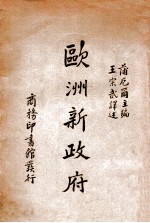 蒲克爾主編
王宗武譯述
歐洲新政府
商務印書館發行